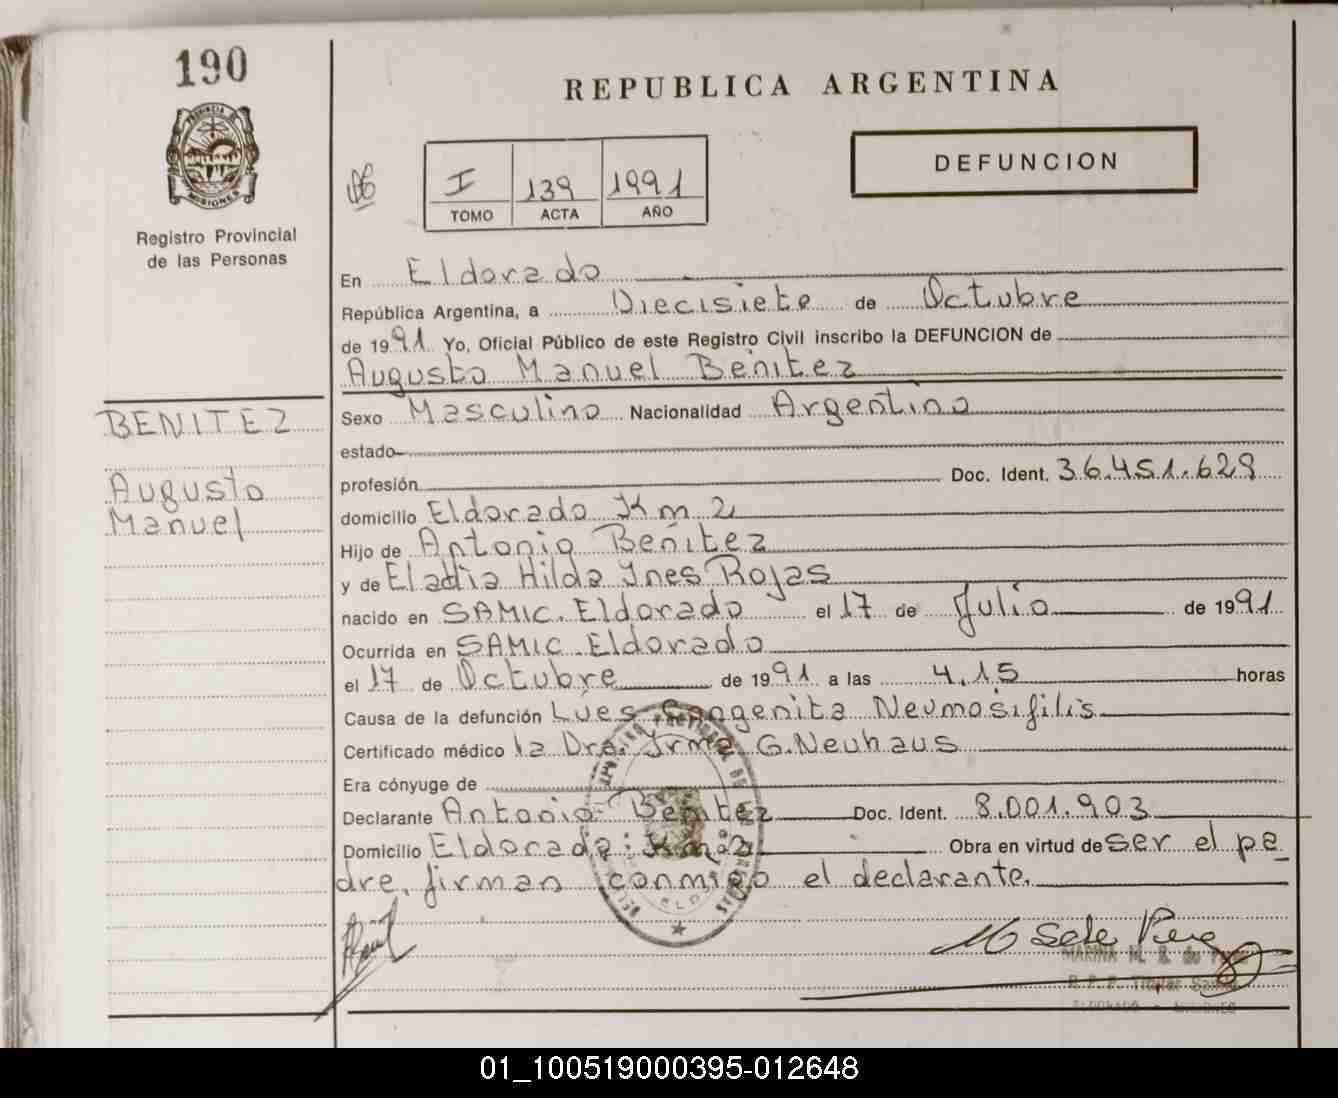 190
REPUBLICA ARGENTINA
PROVINCIA DE
MISIONES
Registro Provincial
de las Personas
I 139 1991
TOMO ACTA AÑO
DEFUNCION
En Eldorado
República Argentina, a Diecisiete de Octubre
de 1991 Yo, Oficial Público de este Registro Civil inscribo la DEFUNCION de
Augusto Manuel Benitez
BENITEZ
Augusto
Manuel
Sexo Masculino Nacionalidad Argentino
estado
profesión Doc. Ident. 36.451.629
domicilio Eldorado Km 2
Hijo de Antonio Benitez
y de Eladia Hilda Ynes Rojas
nacido en SAMIC. Eldorado el 17 de Julio de 1991
Ocurrida en SAMIC. Eldorado
el 17 de Octubre de 1991 a las 4.15 horas
Causa de la defunción Lues Congenita Neumosifilis
Certificado médico la Dra. Yrma G. Neuhaus
Era cónyuge de
Declarante Antonio Benitez Doc. Ident. 8.001.903
Domicilio Eldorado: Km. 2 Obra en virtud de ser el pa_
dre, firman conmigo el declarante.
MARINA M. S. de
01_100519000395-012648